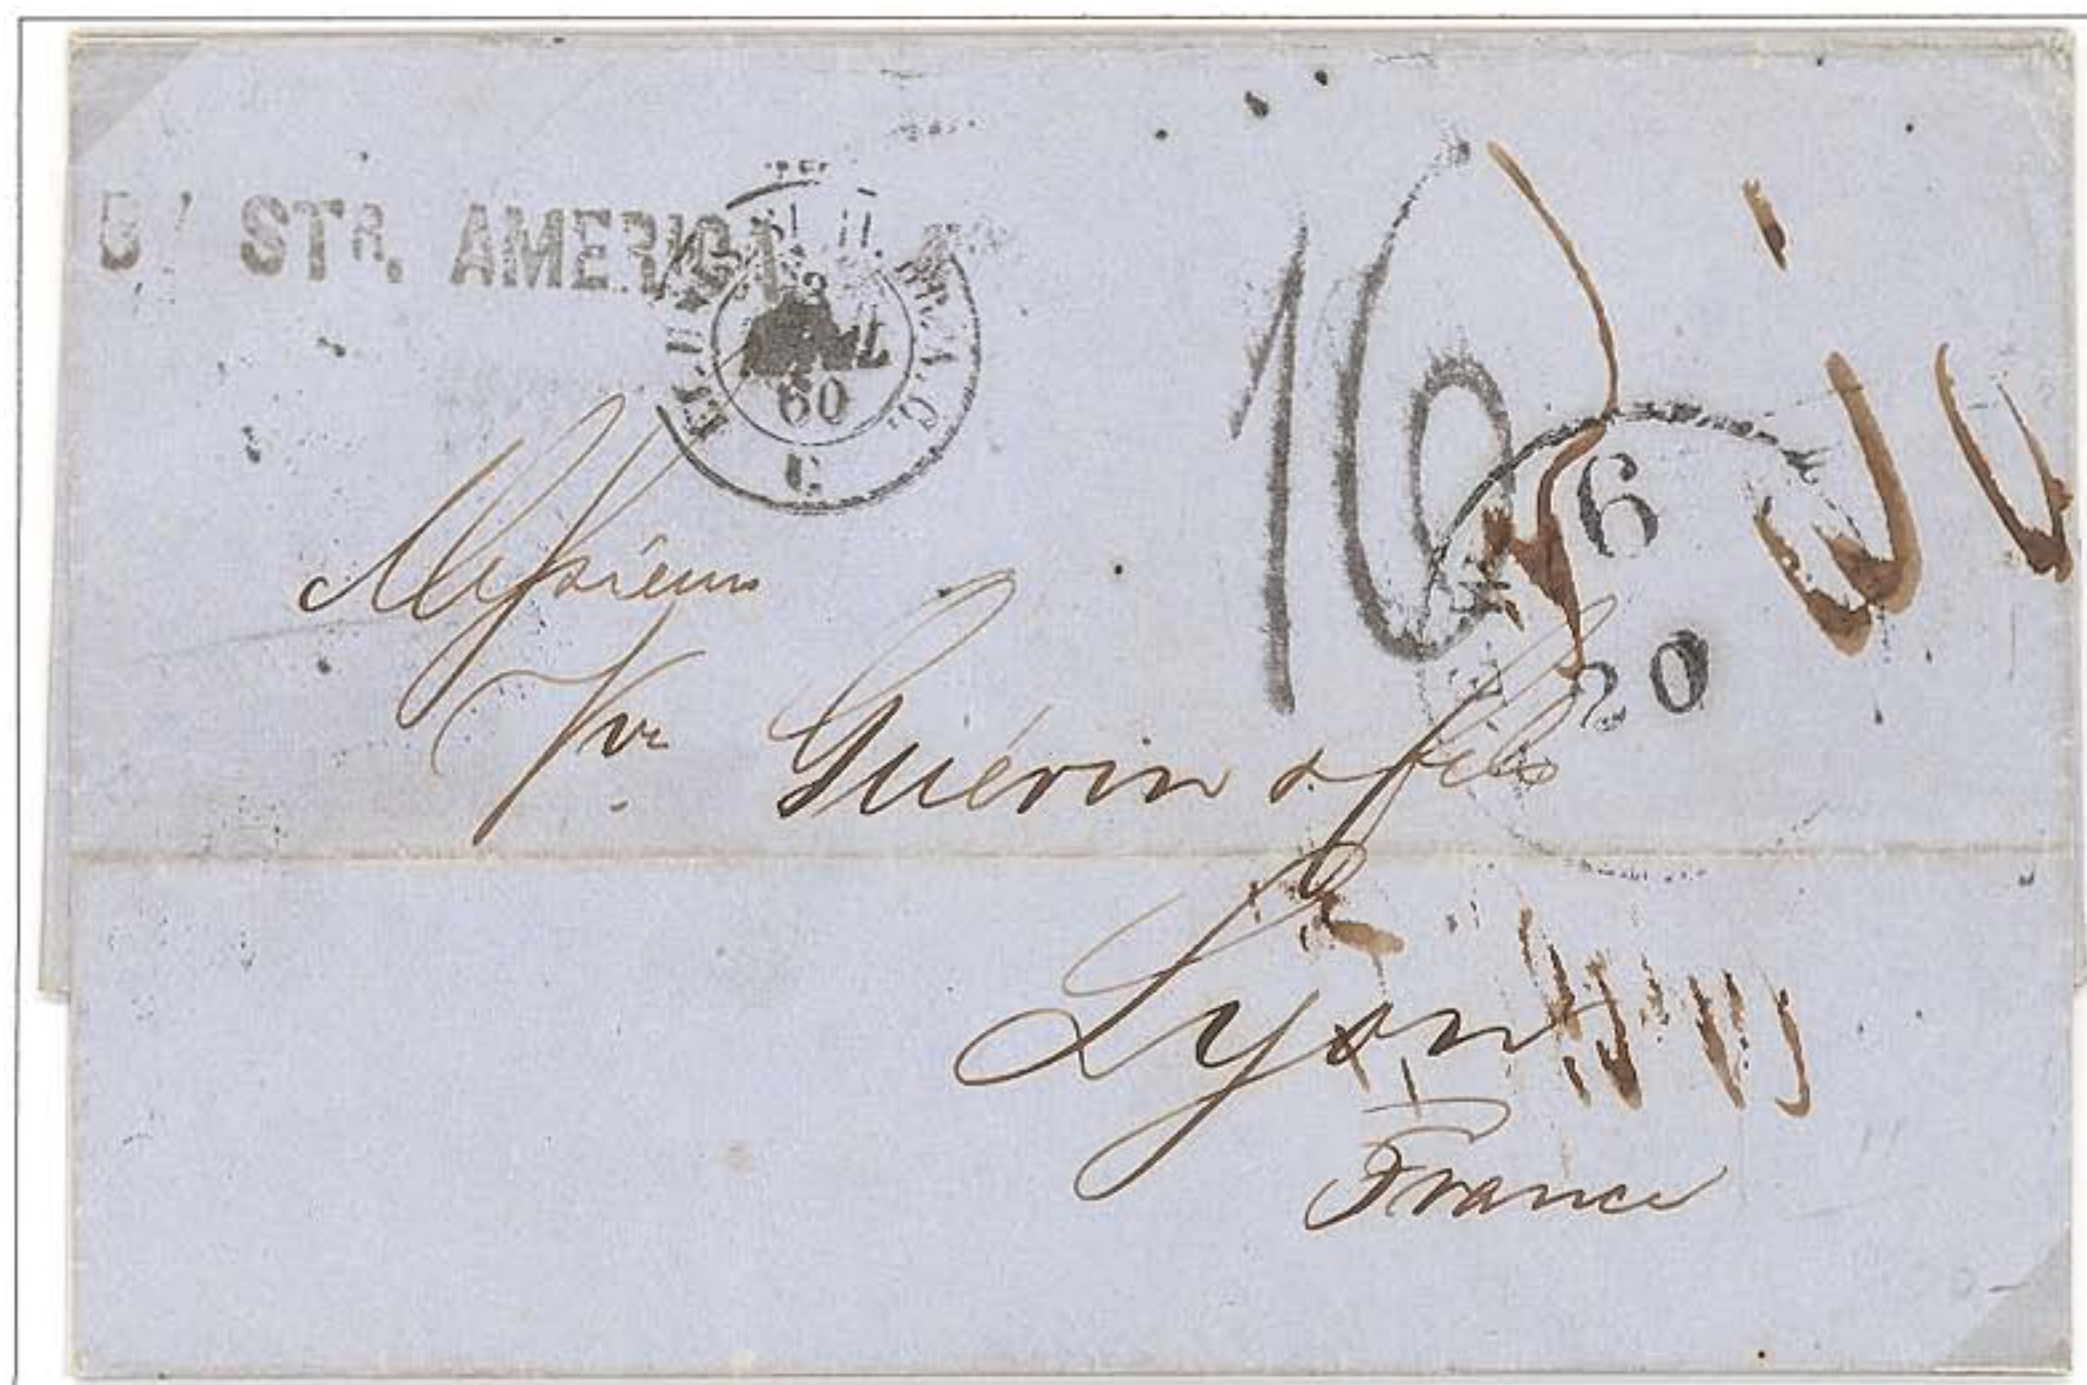 STR. AMERICA
60
C
16
6
20
Messieurs
Vve Guérin & fils
Lyon
France